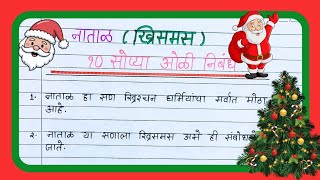 नाताळ (ख्रिसमस)
१० सोप्या ओळी निबंध
१. नाताळ हा सण ख्रिश्चन धर्मियांचा सर्वात मोठा
आहे.
२. नाताळ या सणाला ख्रिसमस असे ही
जाते.